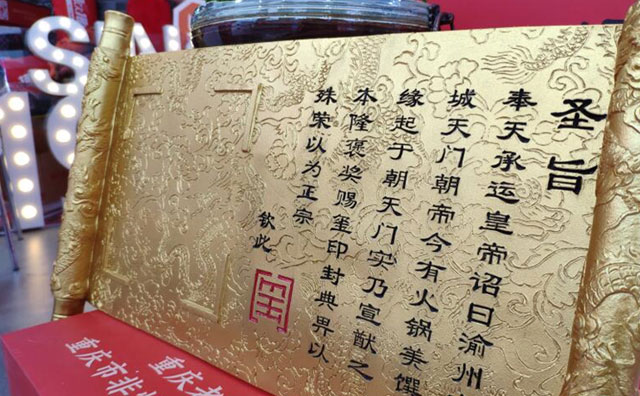 圣旨
奉天承运皇帝诏曰渝州
城天门朝帝今有火锅美馔
缘起于朝天门实乃宣猷之
本隆褒奖赐玺印封典畀以
殊荣以为正宗
钦此
重庆老
重庆市非